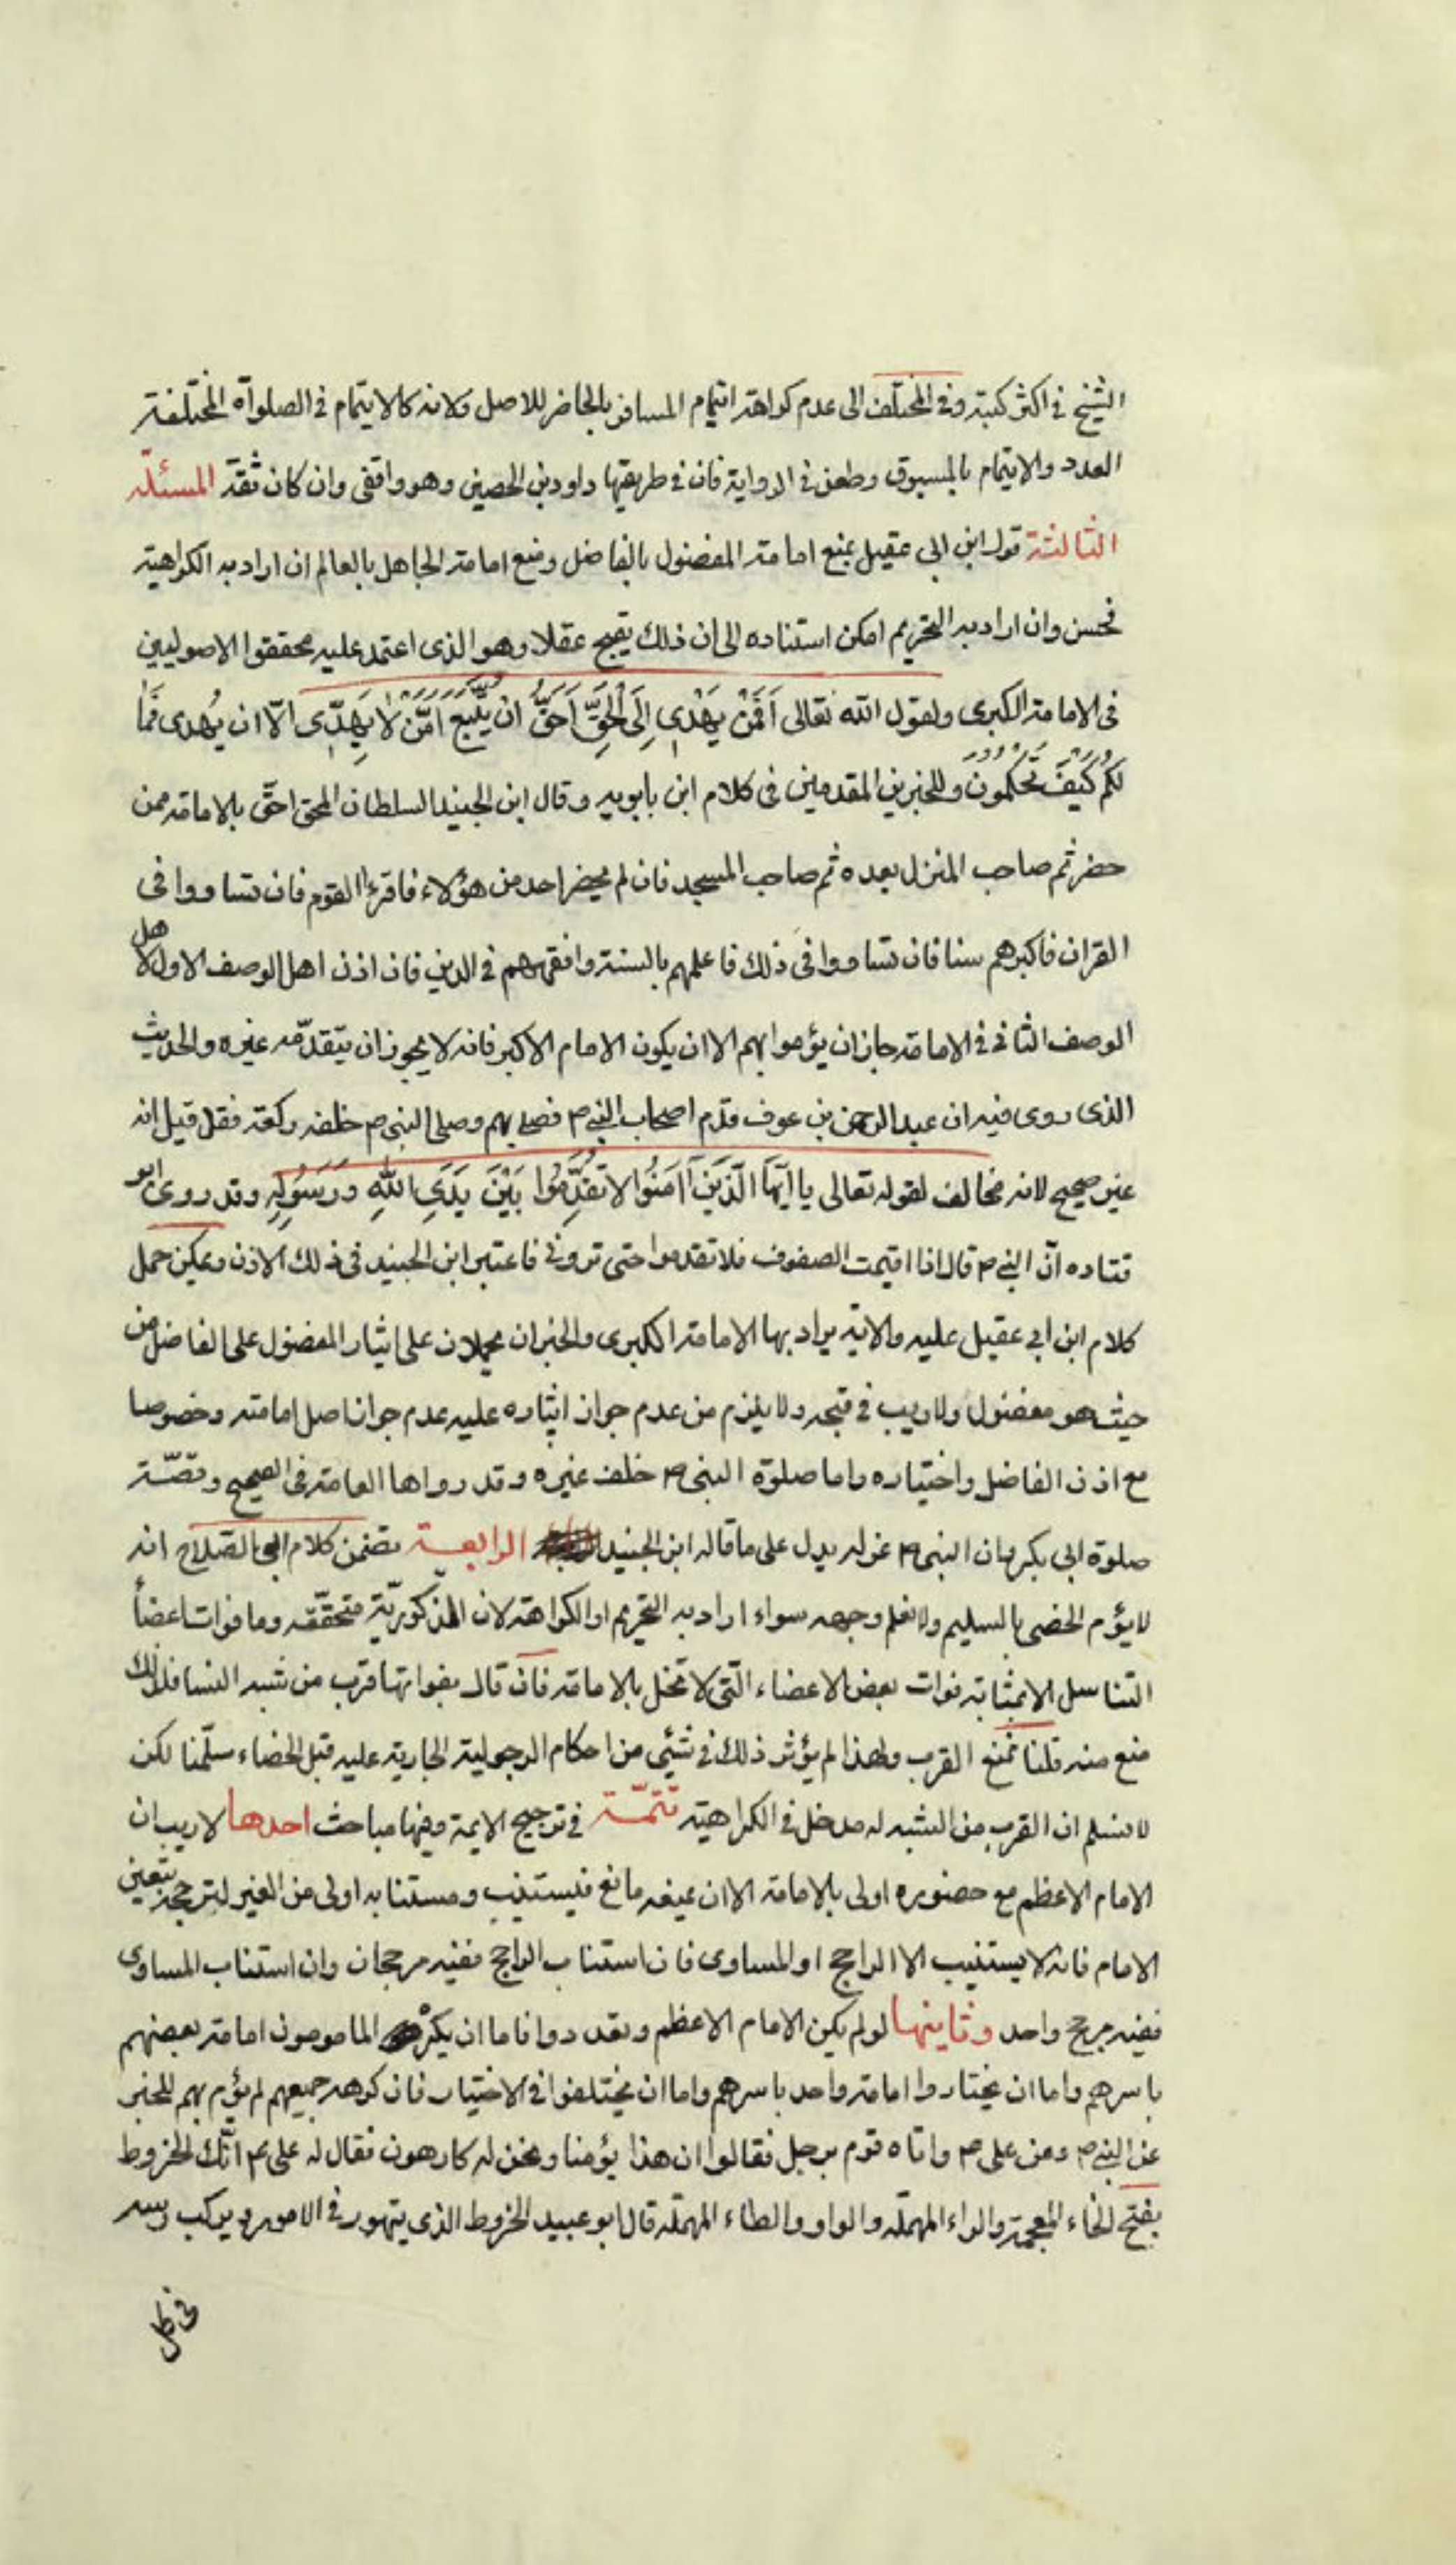 الشيخ في اكثر كتبه وفي المختلف الى عدم كراهة ايتمام المسافر بالحاضر للاصل ولانه كالايتمام في الصلوآة المختلفة
العدد والايتمام بالمسبوق وطعن في الرواية فان في طريقها داود بن الحصين وهو واقفى وان كان ثقة المسئلة
الثالثة قول ابن ابى عقيل بمنع امامة المفضول بالفاضل ومنع امامة الجاهل بالعالم ان اراد به الكراهية
فحسن وان اراد به التحريم امكن استناده الى ان ذلك يقبح عقلا وهو الذى اعتمد عليه محققوا الاصوليين
فى الامامة الكبرى ولقول الله تعالى اَفَمَنْ يَهْدى اِلَى الْحَقِّ اَحَقُّ ان يُتَّبَعَ اَمَّنْ لا يَهِدّى الّا ان يُهدى فَمَا
لَكُمْ كَيْفَ تَحْكُمُونَ وللخبرين المقدمين فى كلام ابن بابويه وقال ابن الجنيد السلطان المحق احقّ بالامامة ممن
حضر ثم صاحب المنزل بعده ثم صاحب المسجد فان لم يحضر احد من هؤلاء فاقرءا القوم فان تساووا فى
القران فاكبرهم سنا فان تساووا فى ذلك فاعلمهم بالسنة وافقههم في الدين فان اذن اهل الوصف الاول لاهل
الوصف الثانى فى الامامة جاز ان يؤموا بهم الا ان يكون الامام الاكبر فانه لا يجوز ان يتقدّمه غيره والحديث
الذى روى فيه ان عبد الرحمن بن عوف قدم اصحاب النبي ص فصلى بهم وصلى النبى ص خلفه ركعة فقد قيل انه
غير صحيح لانه مخالف لقوله تعالى يا ايّهَا الَّذينَ اٰمَنُوا لا تُقَدِّمُوا بَيْنَ يَدَىِ اللّٰهِ وَرَسُولِهِ وقد روى ابو
قتاده انّ النبي ص قال اذا اقيمت الصفوف فلا تقدموا حتى تروني فاعتبر ابن الجنيد فى ذلك الاذن ويمكن حمل
كلام ابن ابي عقيل عليه والاية يراد بها الامامة الكبرى والخبران محملان على ايثار المفضول على الفاضل من
حيث هو مفضول ولا ريب في قبحه ولا يلزم من عدم جواز ايثاره عليه عدم جواز اصل امامته وخصوصا
مع اذن الفاضل واختياره واما صلوة النبى ص خلف غيره وقد رواها العامة فى الصحيح وقصّة
صلوة ابى بكر وان النبى ص عزله يدل على ما قاله ابن الجنيد الرابعة تضمن كلام ابى الصلاح انه
لا يؤم الخصى بالسليم ولا نعلم وجهه سواء اراد به التحريم او الكراهة لان المذكوريّة متحقّقه وما فوات اعضأ
التناسل الا بمثابة فوات بعض الاعضاء الّتى لا تخل بالامامة فان قال بفواتها قرب من شبه النسا فلذلك
منع منه قلنا نمنع القرب ولهذا لم يؤثر ذلك في شئى من احكام الرجولية الجارية عليه قبل الخصاء سلّمنا لكن
لا نسلم ان القرب من الشبه له مدخل في الكراهية تتمّة في ترجيح الايمة وفيها مباحث احدها لا ريب ان
الامام الاعظم مع حضوره اولى بالامامة الا ان يمنعه مانع فيستنيب ومستنابه اولى من الغير لترجحه بتعين
الامام فانه لا يستنيب الا الراجح او المساوى فان استناب الراجح ففيه مرجحان وان استناب المساوى
ففيه مرجح واحد وثانيها لو لم يكن الامام الاعظم وتعددوا فاما ان يكره المامومون امامة بعضهم
باسرهم واما ان يختاروا امامة واحد باسرهم واما ان يختلفوا في الاختيار فان كرهه جميعهم لم يؤم بهم للخبر
عن النبي ص وعن على ص واتاه قوم برجل فقالوا ان هذا يؤمنا ونحن له كارهون فقال له على ع انّك لخروط
بفتح الخاء المعجمة والراء المهملة والواو والطاء المهملة قال ابو عبيد الخروط الذى يتهور في الامور ويركب راسه
فى كل